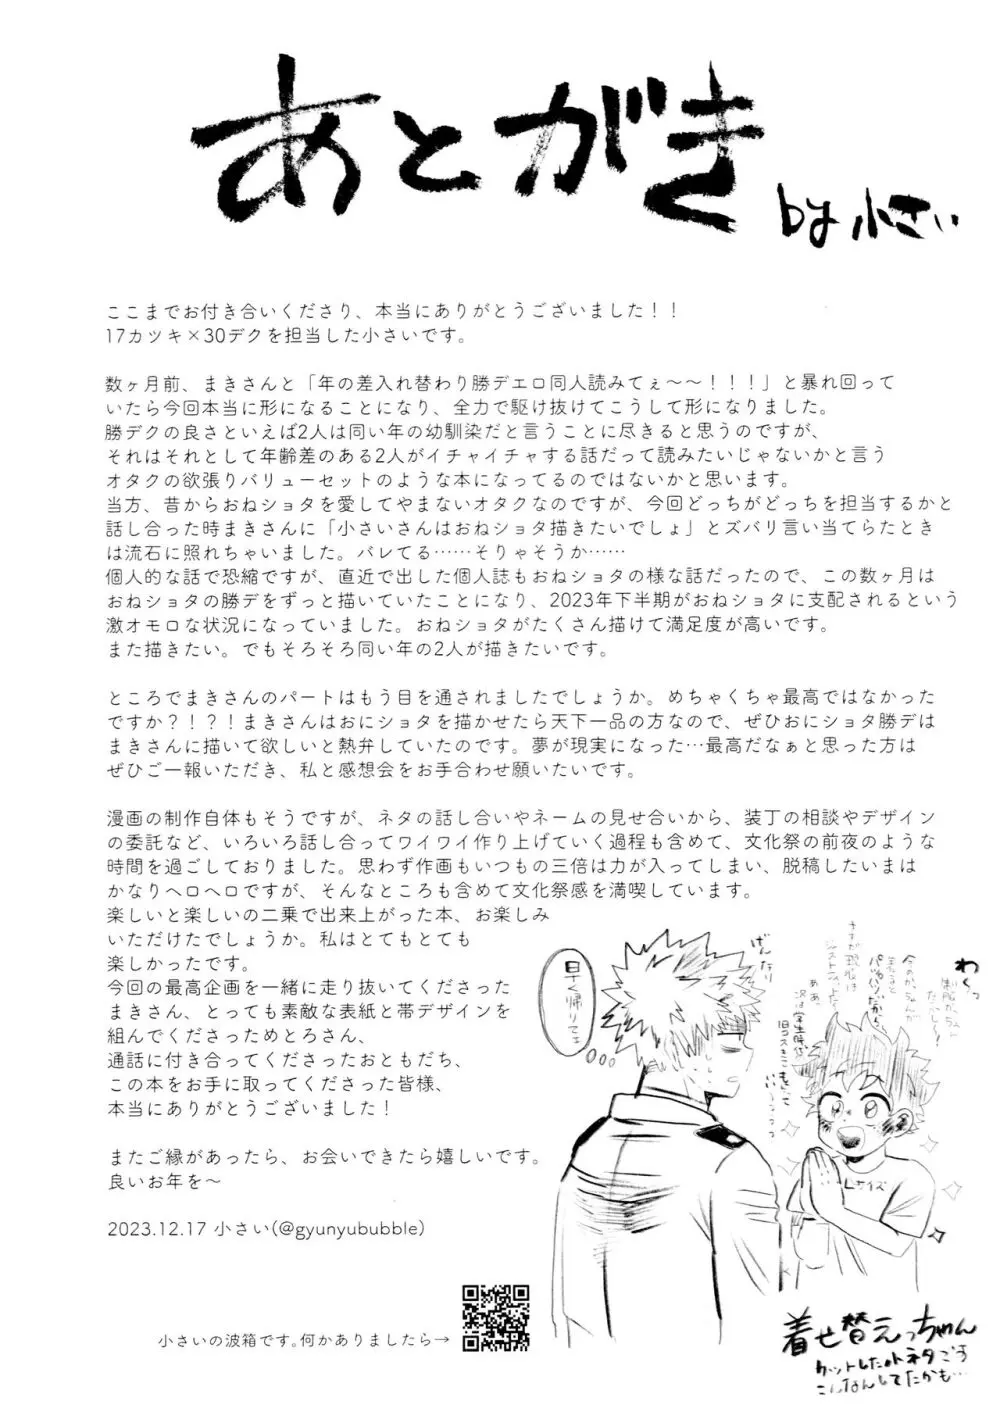 あとがき
by 小さい
ここまでお付き合いくださり、本当にありがとうございました！！
17カツキ×30デクを担当した小さいです。
数ヶ月前、まきさんと「年の差入れ替わり勝デエロ同人読みてぇ〜〜！！！」と暴れ回って
いたら今回本当に形になることになり、全力で駆け抜けてこうして形になりました。
勝デクの良さといえば2人は同い年の幼馴染だと言うことに尽きると思うのですが、
それはそれとして年齢差のある2人がイチャイチャする話だって読みたいじゃないかと言う
オタクの欲張りバリューセットのような本になってるのではないかと思います。
当方、昔からおねショタを愛してやまないオタクなのですが、今回どっちがどっちを担当するかと
話し合った時まきさんに「小さいさんはおねショタ描きたいでしょ」とズバリ言い当てらたとき
は流石に照れちゃいました。バレてる……そりゃそうか……
個人的な話で恐縮ですが、直近で出した個人誌もおねショタの様な話だったので、この数ヶ月は
おねショタの勝デをずっと描いていたことになり、2023年下半期がおねショタに支配されるという
激オモロな状況になっていました。おねショタがたくさん描けて満足度が高いです。
また描きたい。でもそろそろ同い年の2人が描きたいです。
ところでまきさんのパートはもう目を通されましたでしょうか。めちゃくちゃ最高ではなかった
ですか？！？！まきさんはおにショタを描かせたら天下一品の方なので、ぜひおにショタ勝デは
まきさんに描いて欲しいと熱弁していたのです。夢が現実になった…最高だなぁと思った方は
ぜひご一報いただき、私と感想会をお手合わせ願いたいです。
漫画の制作自体もそうですが、ネタの話し合いやネームの見せ合いから、装丁の相談やデザイン
の委託など、いろいろ話し合ってワイワイ作り上げていく過程も含めて、文化祭の前夜のような
時間を過ごしておりました。思わず作画もいつもの三倍は力が入ってしまい、脱稿したいまは
かなりヘロヘロですが、そんなところも含めて文化祭感を満喫しています。
楽しいと楽しいの二乗で出来上がった本、お楽しみ
いただけたでしょうか。私はとてもとても
楽しかったです。
今回の最高企画を一緒に走り抜いてくださった
まきさん、とっても素敵な表紙と帯デザインを
組んでくださっためとろさん、
通話に付き合ってくださったおともだち、
この本をお手に取ってくださった皆様、
本当にありがとうございました！
またご縁があったら、お会いできたら嬉しいです。
良いお年を〜
2023.12.17 小さい(@gyunyububble)
小さいの波箱です。何かありましたら→
わくっ
げんなり
早く帰りてェ
Lサイズ
着せ替えっちゃん
カットした小ネタです
こんなんしてたかも…